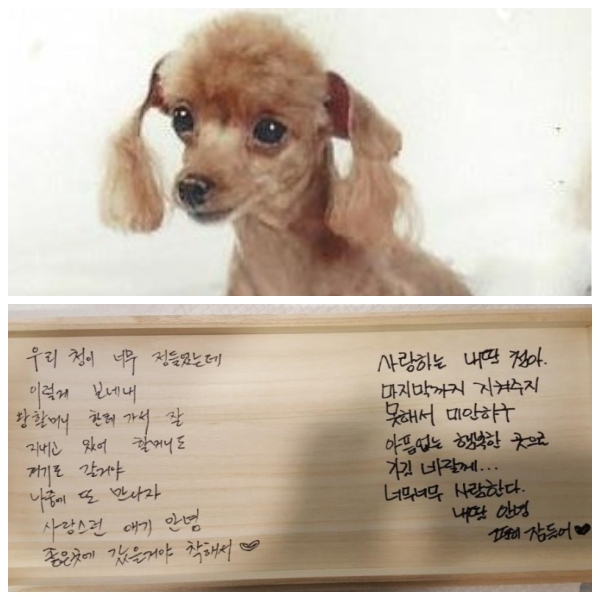 우리 청이 너무 정들었는데
이렇게 보네내
왕할머니 한테 가서 잘
지내고 있어 할머니도
거기로 갈거야
나중에 또 만나자
사랑스런 애기 안녕
좋은곳에 갔을거야 착해서
사랑하는 내딸 청아.
마지막까지 지켜주지
못해서 미안하구
아픔없는 행복한 곳으로
가길 바랄께...
너무너무 사랑한다.
내딸 안녕
잠들어